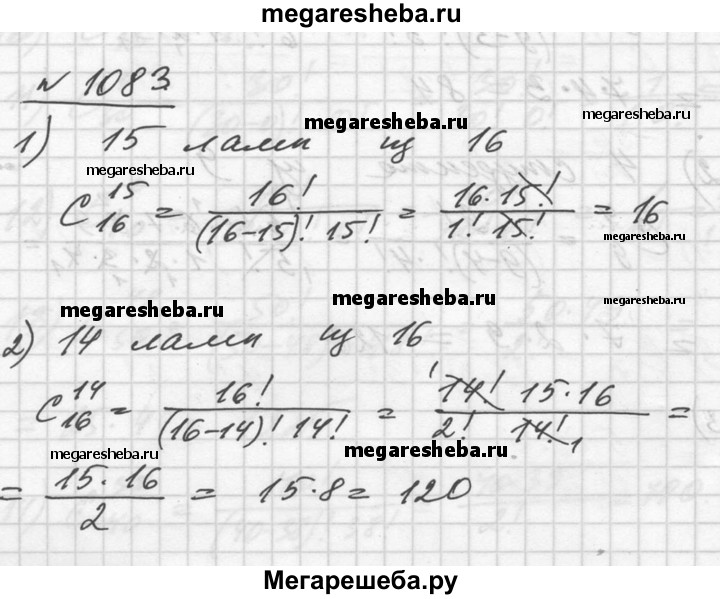 megaresheba.ru
№ 1083
megaresheba.ru
megaresheba.ru
1) 15 ламп из 16
megaresheba.ru
C₁₆¹⁵ = 16! / (16-15)! 15! = 16·15! / 1! 15! = 16
megaresheba.ru
megaresheba.ru
megaresheba.ru
megaresheba.ru
megaresheba.ru
2) 14 ламп из 16
C₁₆¹⁴ = 16! / (16-14)! 14! = 14! 15·16 / 2! 14! =
megaresheba.ru
megaresheba.ru
= 15·16 / 2 = 15·8 = 120
Мегарешеба.ру